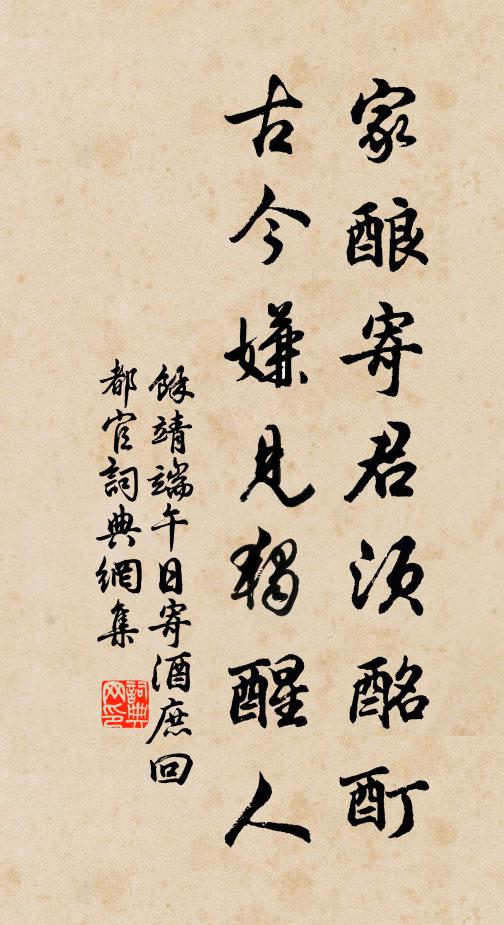 家酿寄君须酩酊
古今嫌见独醒人
馀靖端午日寄酒庶回
都官詞典網集
詞典网印